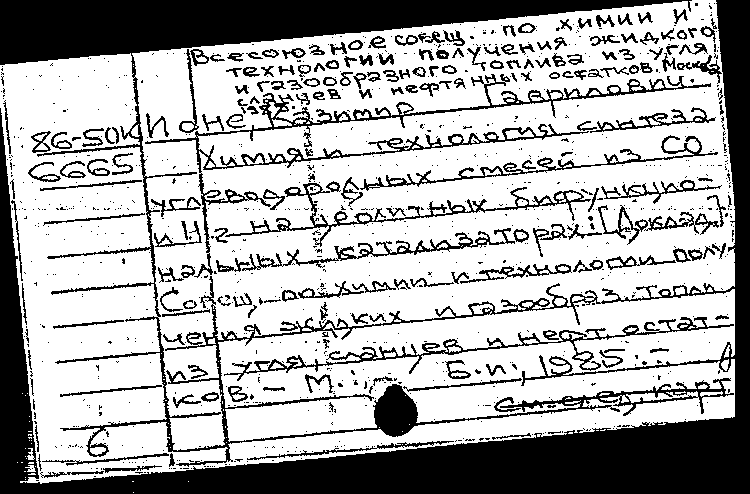 Всесоюзное совещ. по химии и
технологии получения жидкого
и газообразного топлива из угля
сланцев и нефтяных остатков. Москва
86-50К Ионе, Казимир Гаврилович.
6665 Химия и технология синтеза
углеводородных смесей из CO
и H2 на цеолитных бифункцио-
нальных катализаторах: [Доклад]
Совещ. по химии и технологии полу-
чения жидких и газообраз. топли
из угля, сланцев и нефт. остат-
ков. – М.: Б.и., 1985. –
см. след. карт
6